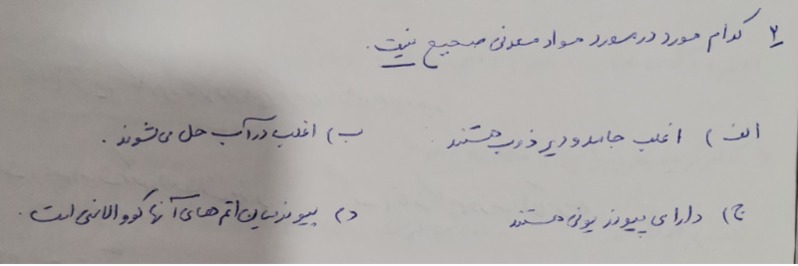 ۲ کدام مورد در مورد مواد معدنی صحیح نیست.
الف) اغلب جامد و دیر ذوب هستند ب) اغلب در آب حل می‌شوند.
ج) دارای پیوند یونی هستند د) پیوند میان اتم‌های آنها کووالانسی است.